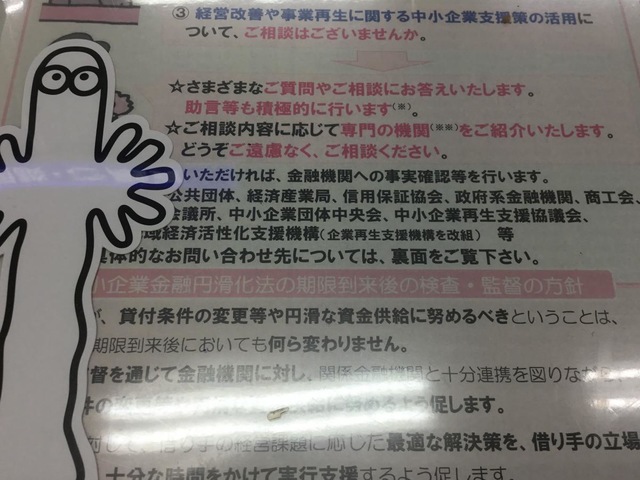 ③ 経営改善や事業再生に関する中小企業支援策の活用に
ついて、ご相談はございませんか。
☆さまざまなご質問やご相談にお答えいたします。
助言等も積極的に行います(※)。
☆ご相談内容に応じて専門の機関(※※)をご紹介いたします。
どうぞご遠慮なく、ご相談ください。
いただければ、金融機関への事実確認等を行います。
公共団体、経済産業局、信用保証協会、政府系金融機関、商工会、
会議所、中小企業団体中央会、中小企業再生支援協議会、
域経済活性化支援機構(企業再生支援機構を改組) 等
具体的なお問い合わせ先については、裏面をご覧下さい。
小企業金融円滑化法の期限到来後の検査・監督の方針
が、貸付条件の変更等や円滑な資金供給に努めるべきということは、
期限到来後においても何ら変わりません。
督を通じて金融機関に対し、関係金融機関と十分連携を図りながら、
件の変更等や円滑な資金供給に努めるよう促します。
対して、借り手の経営課題に応じた最適な解決策を、借り手の立場
十分な時間をかけて実行支援するよう促します。